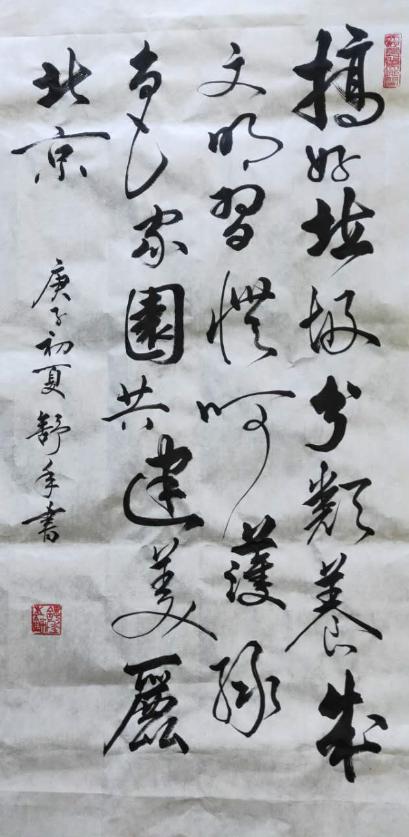 搞好垃圾分類養成
文明習慣呵護綠
色家園共建美麗
北京
庚子初夏舒年書